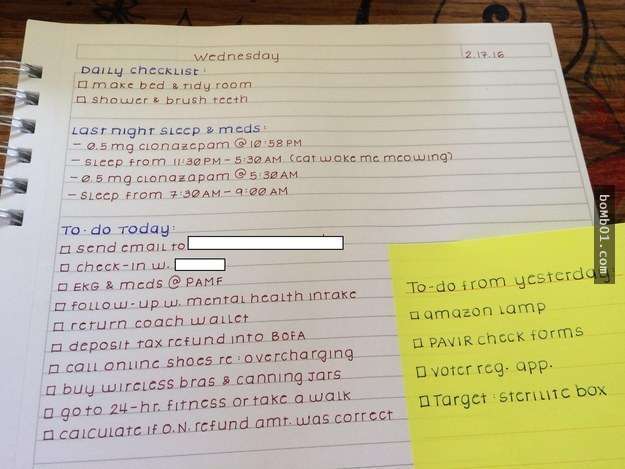 Wednesday 2.17.16
Daily checklist:
☐ make bed & tidy room
☐ shower & brush teeth
Last night sleep & meds:
- 0.5 mg clonazepam @ 10:58 PM
- sleep from 11:30 PM - 5:30 AM (cat woke me meowing)
- 0.5 mg clonazapam @ 5:30 AM
- sleep from 7:30 AM - 9:00 AM
To-do Today:
☐ send email to
☐ check-in w.
☐ EKG & meds @ PAMF
☐ follow-up w. mental health intake
☐ return coach wallet
☐ deposit tax refund into BOFA
☐ call online shoes re: overcharging
☐ buy wireless bras & canning jars
☐ go to 24-hr. fitness or take a walk
☐ calculate if O.N. refund amt. was correct
To-do from yesterday
☐ amazon lamp
☐ PAVIR check forms
☐ voter reg. app.
☐ Target: sterilite box
bomb01.com